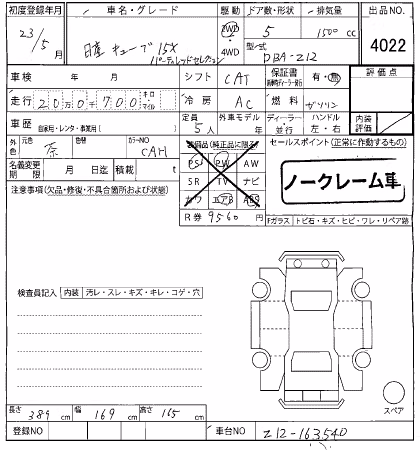 初度登録年月 車名・グレード 駆動 ドア数・形状 排気量 出品NO.
23/5月 日産 キューブ 15X 2WD 5 1500cc
パーティレッドセレクション 4WD 型式 DBA-Z12 4022
車検 年 月 シフト CAT 保証書 有・無 評価点
走行 20万0千700 キロ マイル 冷房 AC 燃料 ガソリン
車歴 自家用・レンタ・事業用( ) 定員 5人 外車モデル 年 ディーラー 並行 ハンドル 左・右 内装評価
外色 元色 赤 カラーNO CAH 装備品(純正品に限る) セールスポイント(正常に作動するもの)
名義変更期限 月 日迄 積載 t PS PW AW
SR TV ナビ
注意事項(欠品・修復・不具合箇所および状態) カワ エアB ABS
ノークレーム車
R券 9560 Fガラス トビ石・キズ・ヒビ・ワレ・リペア跡
検査員記入 内装 汚レ・スレ・キズ・キレ・コゲ・穴
スペア
長さ 389 cm 幅 169 cm 高さ 165 cm
登録NO 車台NO Z12-163540